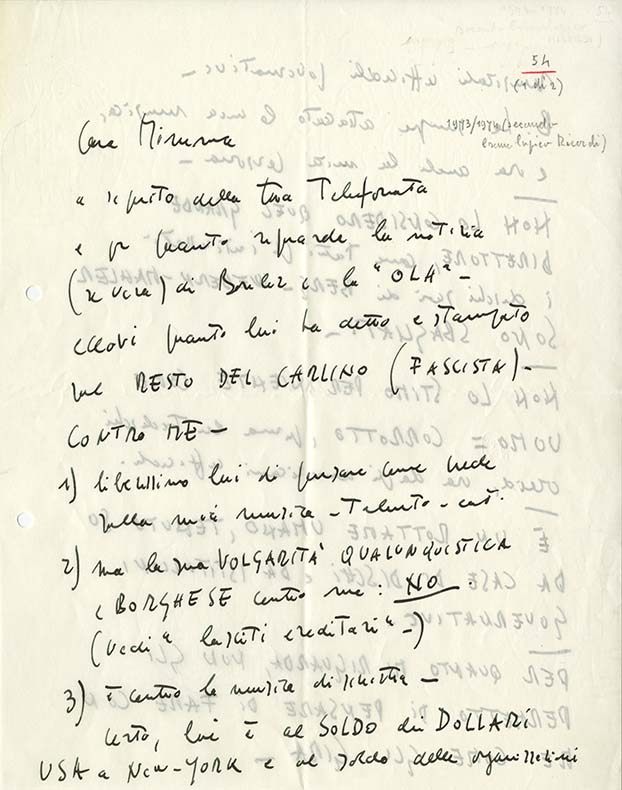 54
(1 di 2)
1973/1974 (secondo
Cara Mimma
a seguito della tua Telefonata
e per quanto riguarda la notizia
(se vera) di Boulez e la "OLA" -
eccovi quanto lui ha detto e stampato
sul RESTO DEL CARLINO (FASCISTA) -
CONTRO ME -
1) liberissimo lui di pensare come crede
sulla mia musica - Talento - ecc.
2) ma la sua VOLGARITÀ QUALUNQUISTICA
e BORGHESE contro me: NO
(vedi "lasciti ereditari" -)
3) è contro la musica di sinistra -
certo, lui è al SOLDO dei DOLLARI
USA a New-YORK e al soldo delle organizzazioni